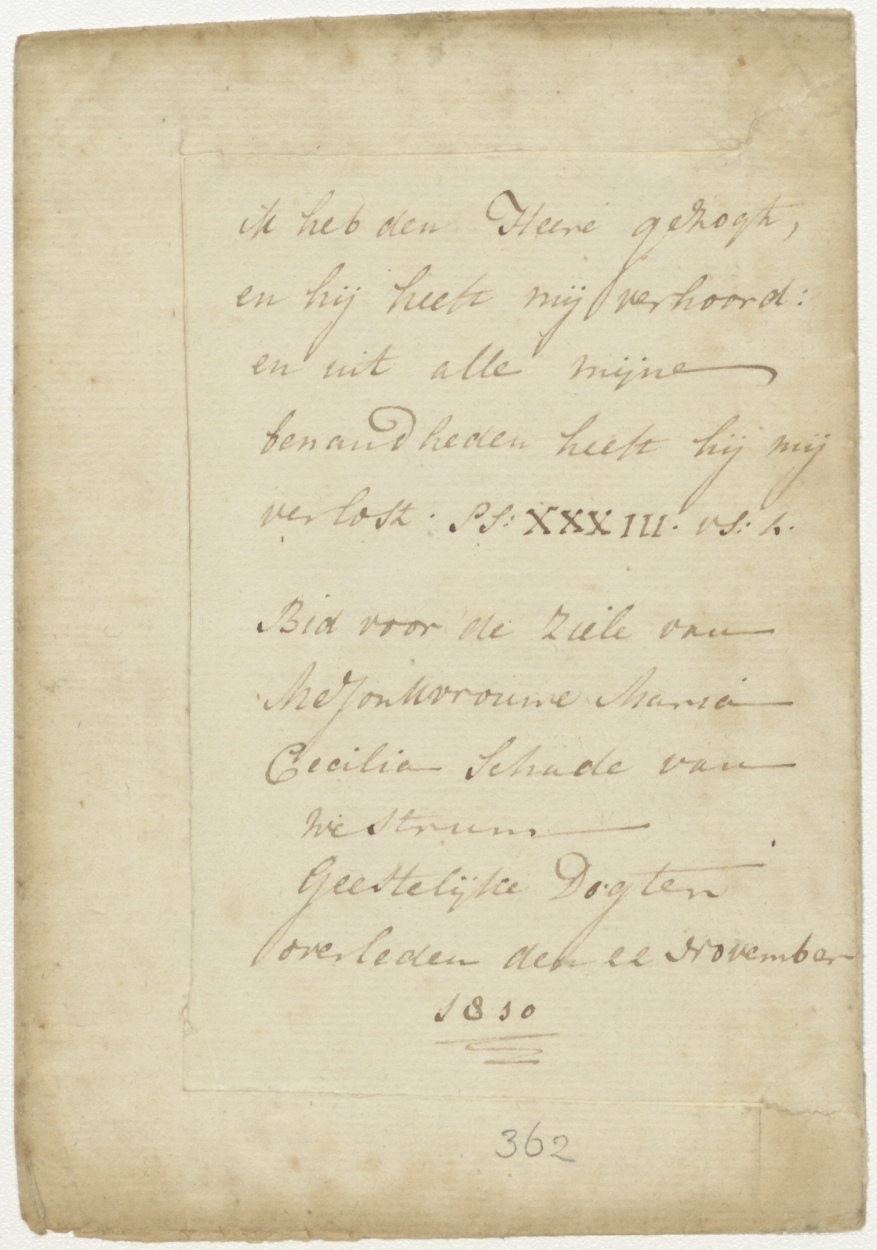 ik heb den Heere gezogt,
en hij heeft mij verhoord:
en uit alle mijne
benaudheden heeft hij mij
verlost. Ps: XXXIII. vs: 4.
Bid voor de Ziele van
MeJonkvrouwe Maria
Cecilia Schade van
Westrum
Geestelijke Dogter
overleden den 22 November
1810
362